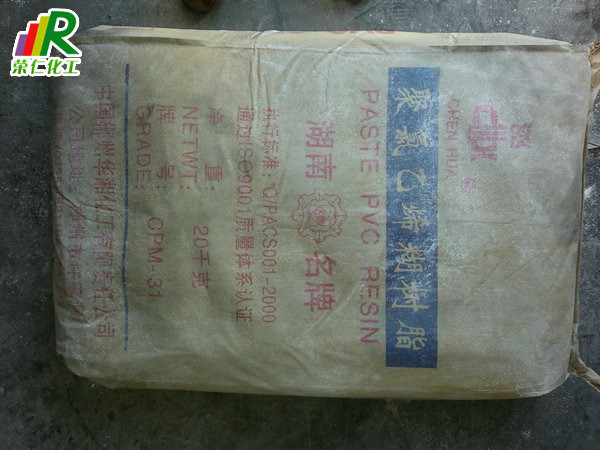 荣仁化工
CHEN HUA
聚氯乙烯糊树脂
PASTE PVC RESIN
湖南 名牌
执行标准: C/PACS001-2000
通过ISO9001质量体系认证
净 重: 20千克
NETWT:
牌 号: CPM-31
GRADE: